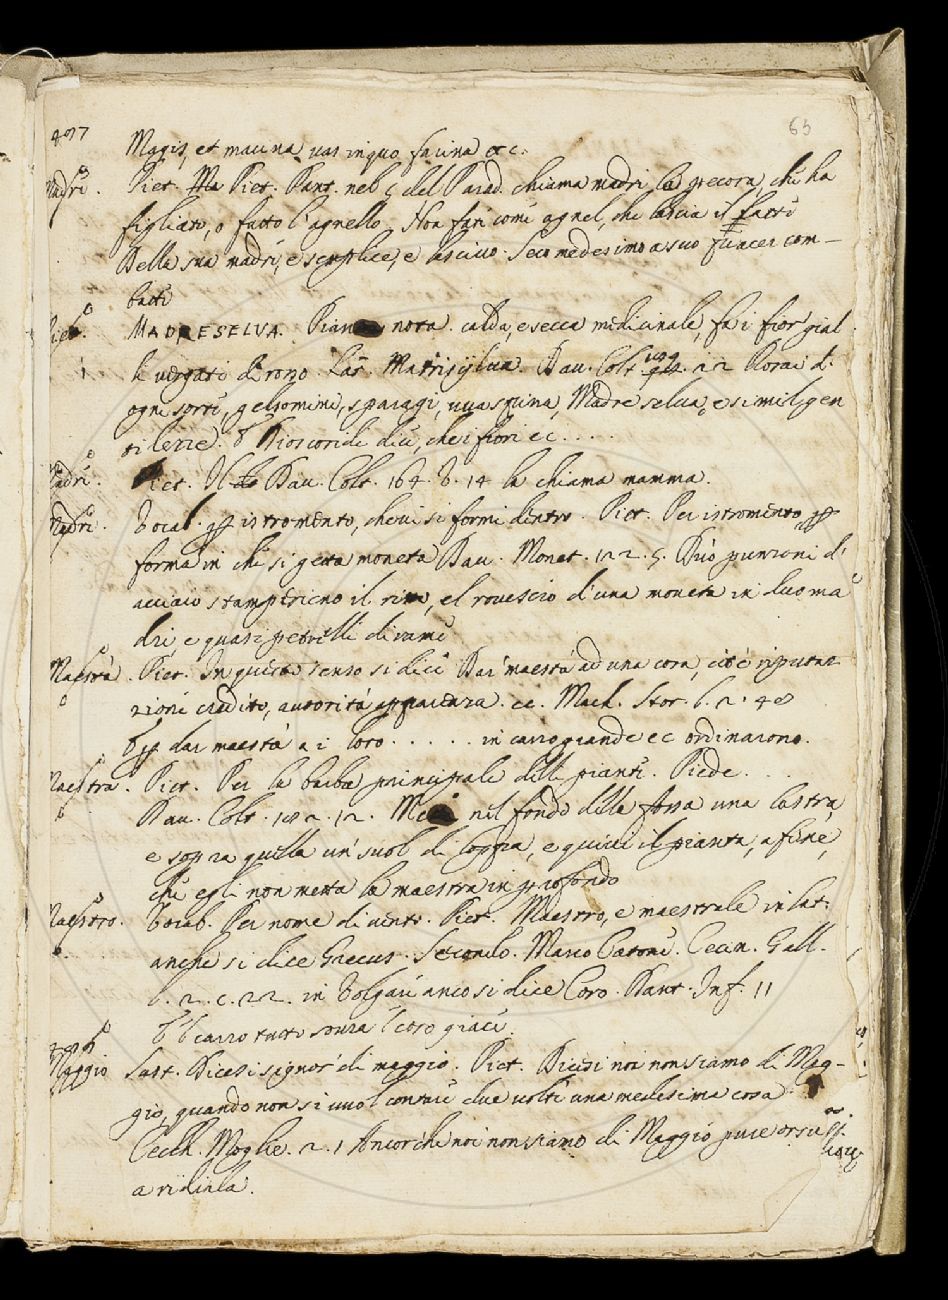 497
65
Magis, et macina uas in quo farina etc.
Madre. Piet. Ma Piet. Dant. nel 5 del Parad. chiama madre la pecora, che ha
figliato, o fatto l'agnello. Non fate come agnel, che lascia il latte
Della sua madre, e semplice, e lasciuo Seco medesimo a suo piacer com-
batte
MADRESELVA. Pianta nota. calda, e secca medicinale, fa i fior gial
li uergati di rosso. Lat. Matrisylua. Dau. Colt. 22 Rosai d'
ogni sorte, gelsomini, sparagi, uua spina, Madre selua, e simil gen
tilezze. Dioscoride dice, che i fiori ec . . . . .
Madre. Piet. Il Dau. Colt. 164. 14 la chiama mamma.
Madre. Vocab. istromento, che ui si formi dentro. Piet. Per istromento
forma in che si getta moneta Dau. Monet. 122. 5. Duo punzoni d'
acciaio stamperieno il ritto, el rouescio d'una moneta in duo ma
dri, e quasi petrelle di rame
Maestà. Piet. In questo senso si dice Dar maestà ad una cosa, cioè riputaz
zione credito, autorità apparenza. ec. Mach. Stor. l. 2. 48
dar maestà a i loro . . . . . in carro grande ec ordinarono.
Maestra. Piet. Per la barba principale delle piante. Piede. . . .
Dau. Colt. 182. 12. nel fondo della fossa una lastra,
e sopra quella un' suol di loppa, e quiui il pianta, a fine,
che egli non metta la maestra in profondo
Maestro. Vocab. Per nome di uento. Piet. Maestro, e maestrale in lat.
anche si dice Grecus. Secondo. Marco Catone. Gell.
l. 2. c. 22. in Volgare anco si dice Coro. Dant. Inf. 11
E 'l carro tutto soura 'l coro giace.
Maggio Salt. Dicesi signor di maggio. Piet. Dicesi noi non siamo di Mag-
gio, quando non si uuol contare due uolte una medesima cosa
Cecch. Moglie. 2. 1 Ancorche noi non siamo di Maggio pure orsu
a ridirla.